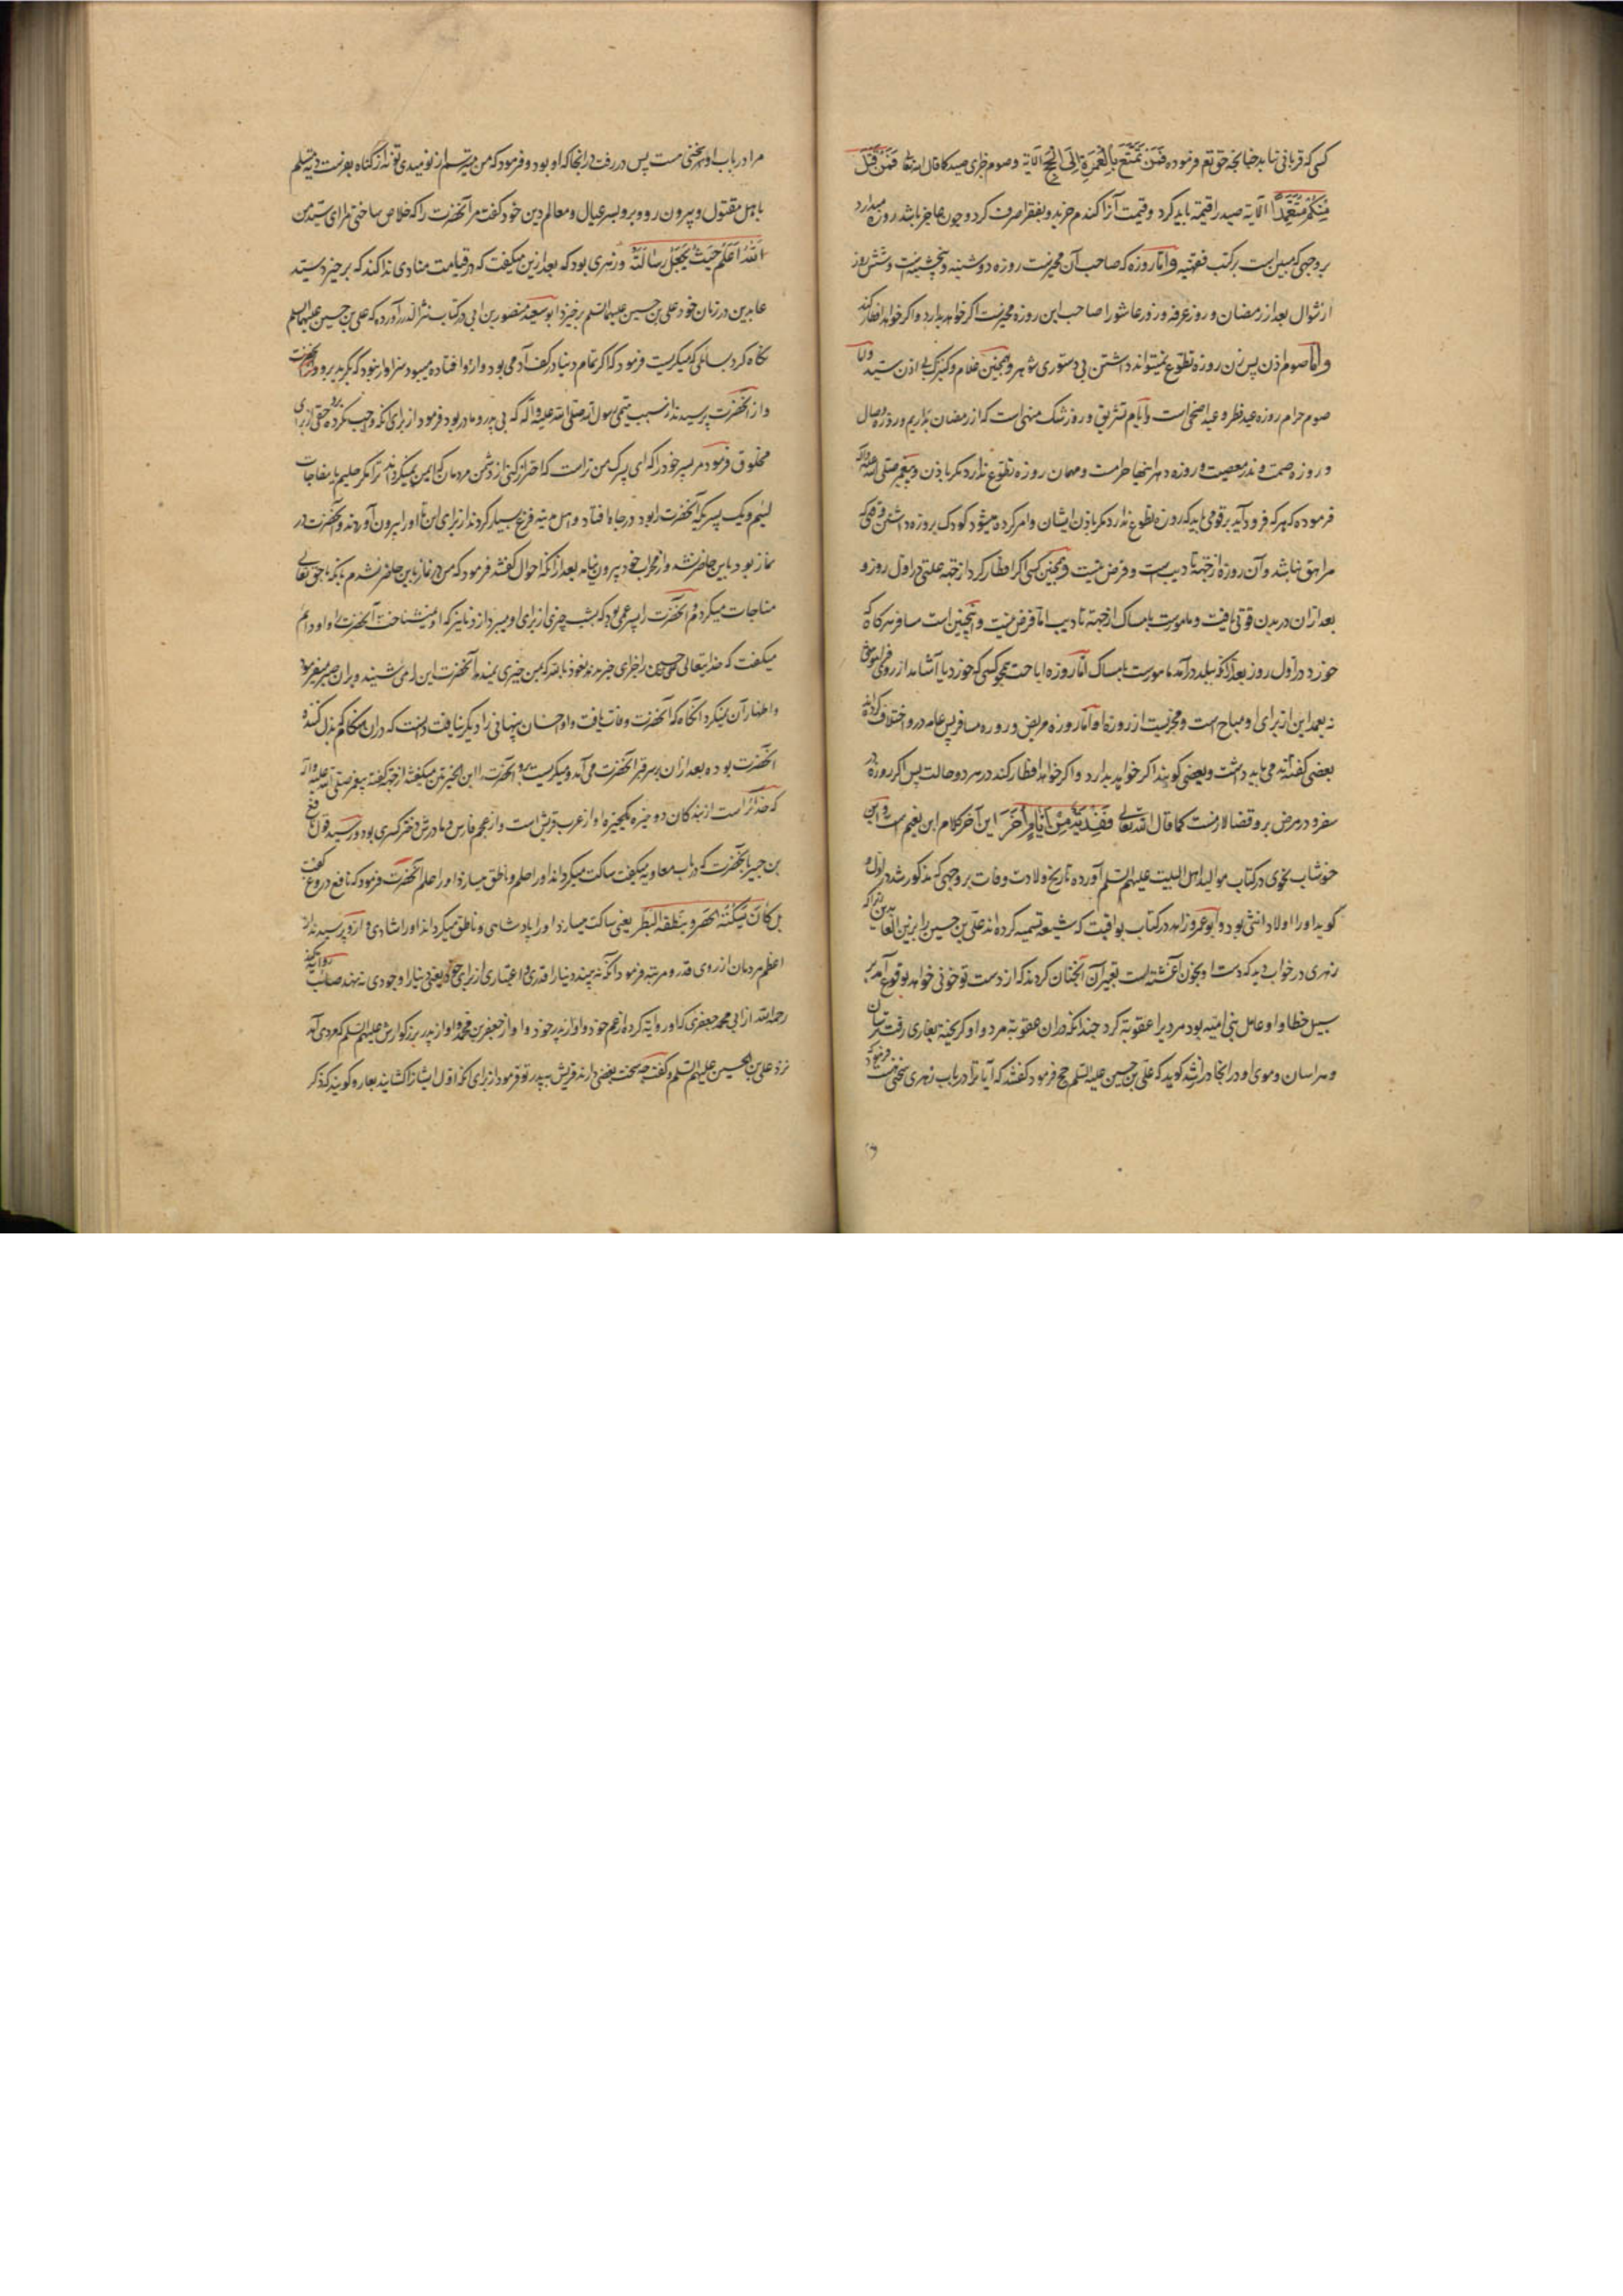 کسی که قربانی نیابد چنانچه حق تع فرموده فَمَن تَمَتَّعَ بِالْعُمْرَةِ اِلَی الْحَجِّ الآیة وصوم جزای صید کما قال الله تعا فَمَن قَتَلَ
مِنکُم مُتَعَمِّدًا الآیة صید را قیمة باید کرد وقیمت آنرا گندم خرید وبفقرا صرف کرد وچون عاجز باشد روزه میدارد
بر وجهی که مبین است در کتب فقهیه واما روزه که صاحب آن مخیرست روزه دوشنبه وپنجشنبه است وشش روز
از شوال بعد از رمضان وروز عرفه وروز عاشورا صاحب این روزه مخیرست اگر خواهد بدارد واگر خواهد افطار کند
واما صوم اذن پس زن روزه تطوع نمیتواند داشتن بی دستوری شوهر وهمچنین غلام وکنیزک بی اذن سید واما
صوم حرام روزه عید فطر وعید اضحی است وایام تشریق وروز شک منهی است که از رمضان بداریم وروزه وصال
وروزه صمت ونذر معصیت وروزه دهر اینها حرامست ومهمان روزه تطوع ندارد مگر باذن وپیغمبر صلی الله علیه وآله
فرموده که هر که فرود آید بر قومی باید که روزه تطوع ندارد مگر باذن ایشان وامر کرده میشود کودک بروزه داشتن وقتی که
مراهق نباشد وآن روزه از جهة تادیب است وفرض نیست وهمچنین کسی اگر افطار کرد از جهة علتی در اول روز و
بعد از ان در بدن قوتی یافت ومامورست بامساک از جهة تادیب اما فرض نیست وهمچنین است مسافر هرگاه که
خورد در اول روز بعد از آن که ببلد درآمد مامورست بامساک اما روزه اباحت همچو کسی که خورد یا آشامد از روی فراموشی
نه بعمد این از برای او مباح است ومجزیست از روزه او واما روزه مریض وروزه مسافر پس عامه درو اختلاف کرده اند
بعضی گفته اند می باید داشت وبعضی گویند اگر خواهد بدارد واگر خواهد افطار کند در هر دو حالت پس اگر روزه در
سفر ودر مرض برو قضا لازمست کما قال الله تعالی فَعِدَّةٌ مِنْ اَیَّامٍ اُخَرَ این آخر کلام ابن نعیم است وابن
خوشاب نحوی در کتاب موالید اهل البیت علیهم السلم آورده تاریخ ولادت وفات بر وجهی که مذکور شد در اول و
گوید او را اولاد انثی بود وابو عمرو زاهد در کتاب یواقیت که شیعه تسمیه کرده اند علی بن حسین را بزین العابدین
زهری در خواب دید که دست او بخون آغشته است تعبیر آن آنچنان کردند که از دست تو خونی خواهد بوقوع آمد بر
سبیل خطا واو عامل بنی امیه بود مردیرا عقوبة کرد چندانکه در ان عقوبة مرد واو گریخته بغاری رفت ترسان
وهراسان وموی او در آنجا دراز شد گوید که علی بن حسین علیه السلم حج فرمود گفتند که آیا ترا در باب زهری سخنی هست فرمود
مرا در باب او سخنی هست پس در رفت در آنجا که او بود وفرمود که من میترسم از نومیدی تو نه از گناه بفرست دیه مسلم
باهل مقتول وبیرون رو وبرو بسر عیال ومعالم دین خود گفت مر آنحضرت را که خلاص ساختی مرا ای سید من
اللهُ اَعْلَمُ حَیْثُ یَجْعَلُ رِسَالَتَهُ وزهری بود که بعد ازین میگفت که در قیامت منادی ندا کند که برخیزد سید
عابدین در زمان خود علی بن حسین علیهما السلم برخیزد ابو سعید منصور بن ابی در کتاب نثر الدرر آورده که علی بن حسین علیهما السلم
نگاه کرد بسائلی که میگریست فرمود که اگر تمام دنیا در کف آدمی بود وازو افتاده میبود سزاوار نبود که بگرید برو
واز آنحضرت پرسیدند از سبب یتیمی رسول الله صلی الله علیه وآله که بی پدر ومادر بود فرمود از برای آنکه واجب نگردد برو حقی از برای
مخلوق فرمود مر پسر خود را که ای پسرک من
لئیم ویک پسر که آنحضرت را بود در چاه افتاد واهل مدینه فزع بسیار کردند از برای این تا او را بیرون آوردند وآنحضرت در
نماز بود باین حاضر نشد واز محراب خود بیرون نیامد بعد از آنکه احوال گفتند فرمود که من در نماز باین حاضر نشدم بآنکه با حق تعالی
مناجات میکردم وآنحضرت را پسر عمی بود که بشب چیزی از برای او میبرد از دنانیر که او نمیشناخت آنحضرت را واو دایم
میگفت که خدایتعالی علی بن حسین را جزای خیر ندهد نعوذ بالله که بمن چیزی نمیدهد آنحضرت این را می شنید وبر ان صبر میفرمود
واظهار آن نمیکرد آنگاه که آنحضرت وفات یافت واو احسان پنهانی را دیگر نیافت دانست که در ان هنگام بذل کننده
آنحضرت بوده بعد از ان بر سر قبر آنحضرت می آمد ومیگریست برو وآنحضرت را ابن الخیرتین میگفتند از جهة گفته پیغمبر صلی الله علیه وآله
که خدای راست از بندگان دو خیره یکی خیره او از عرب قریش است واز عجم فارس ومادرش دختر کسری بود ورسید قول نافع
بن جبیر بآنحضرت که در باب معاویه میگفت ساکت میگرداند او را حلم وناطق میسازد او را علم آنحضرت فرمود که نافع دروغ گفت
بل کَانَ یُسْکِتُهُ الْحَصَرُ وَیُنْطِقُهُ الْبَطَرُ یعنی ساکت میسازد او را پادشاهی وناطق میگرداند او را شادی وازو پرسیدند از
اعظم مردمان از روی قدر ومرتبه فرمود آنکه نه بیند دنیا را قدری واعتباری از برای خود یعنی دنیا را وجودی ننهد صاحب روایة کند
رحمه الله از ابی محمد جعفری که او روایة کرده از عم خود واو از پدر خود واو از جعفر بن محمد واو از پدر بزرگوارش علیهم السلم که مردی آمد
نزد علی بن الحسین علیهم السلم وگفت چه سخت بغض دارند قریش بپدر تو فرمود از برای آنکه اول ایشانرا کشانید بعار وگویند که ذکر